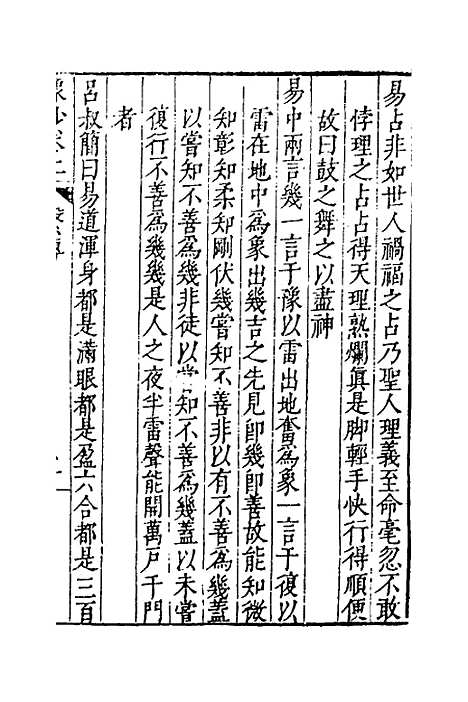 易占非如世人禍福之占乃聖人理義至命毫忽不敢
悖理之占占得天理熟爛眞是脚輕手快行得順便
故曰鼓之舞之以盡神
易中兩言幾一言于豫以雷出地奮爲象一言于復以
雷在地中爲象出幾吉之先見卽幾卽善故能知微
知彰知柔知剛伏幾嘗知不善非以有不善爲幾蓋
以嘗知不善爲幾非徒以嘗知不善爲幾蓋以未嘗
復行不善爲幾幾是人之夜半雷聲能開萬戸千門
者
呂叔簡曰易道渾身都是滿眼都是盈六合都是三百